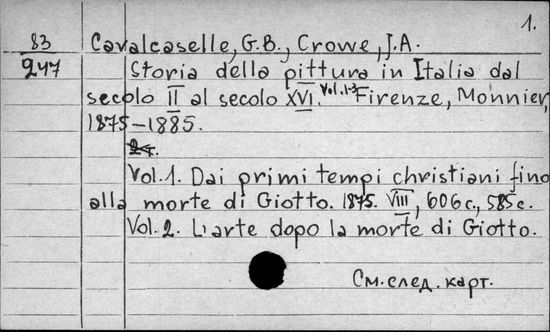 1.
83 Cavalcaselle, G.B., Crowe, J.A.
247 Storia della pittura in Italia dal
secolo II al secolo XVI. Vol. 1-3 Firenze, Monnier,
1875-1885.
Vol. 1. Dai primi tempi christiani fino
alla morte di Giotto. 1875. VIII, 606 c., 585 c.
Vol. 2. L'arte dopo la morte di Giotto.
См. след. карт.